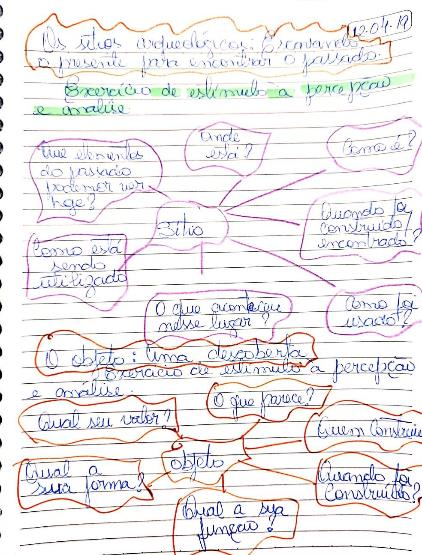 12.04.19
Os sítios arqueológicos: Escavando
o presente para encontrar o passado.
Exercício de estímulo à percepção
e análise
Que elementos
do passado
podemos ver
hoje?
Onde
está?
Como é?
Sítio
Quando foi
construído/
encontrado?
Como está
sendo
utilizado
O que aconteceu
nesse lugar?
Como foi
usado?
O objeto: Uma descoberta
Exercício de estímulo à percepção
e análise.
Qual seu valor?
O que parece?
Quem construiu
objeto
Qual a
sua forma?
Quando foi
construído?
Qual a sua
função?